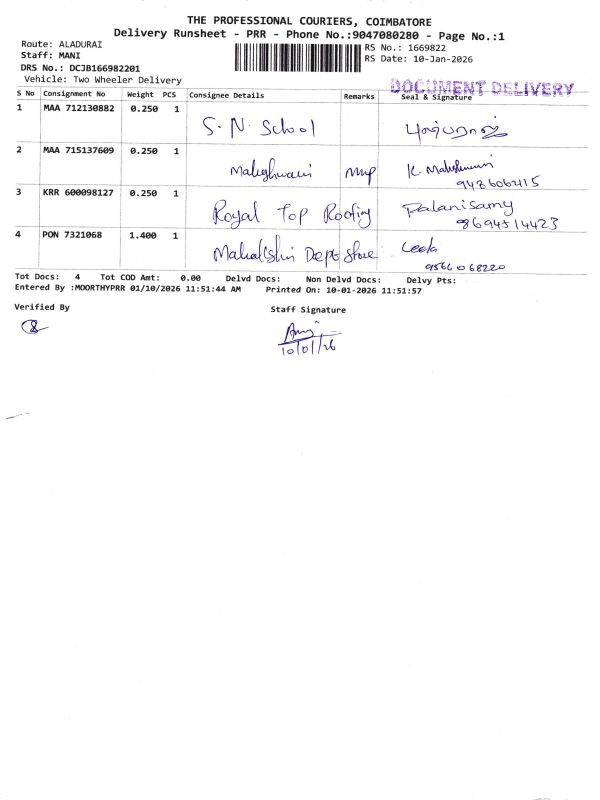 THE PROFESSIONAL COURIERS, COIMBATORE
Delivery Runsheet - PRR - Phone No.:9047080280 - Page No.:1
Route: ALADURAI
Staff: MANI
DRS No.: DCJB166982201
Vehicle: Two Wheeler Delivery
RS No.: 1669822
RS Date: 10-Jan-2026
DOCUMENT DELIVERY
S No Consignment No Weight PCS Consignee Details Remarks Seal & Signature
1 MAA 712130882 0.250 1 S. N. School
2 MAA 715137609 0.250 1 Maheshwari K. Maheshwari
3 KRR 600098127 0.250 1 Royal Top Roofing Palanisamy
8694514423
4 PON 7321068 1.400 1 Dept Store Leela
9566068220
Tot Docs: 4 Tot COD Amt: 0.00 Delvd Docs: Non Delvd Docs: Delvy Pts:
Entered By :MOORTHYPRR 01/10/2026 11:51:44 AM Printed On: 10-01-2026 11:51:57
Verified By
Staff Signature
10/01/26